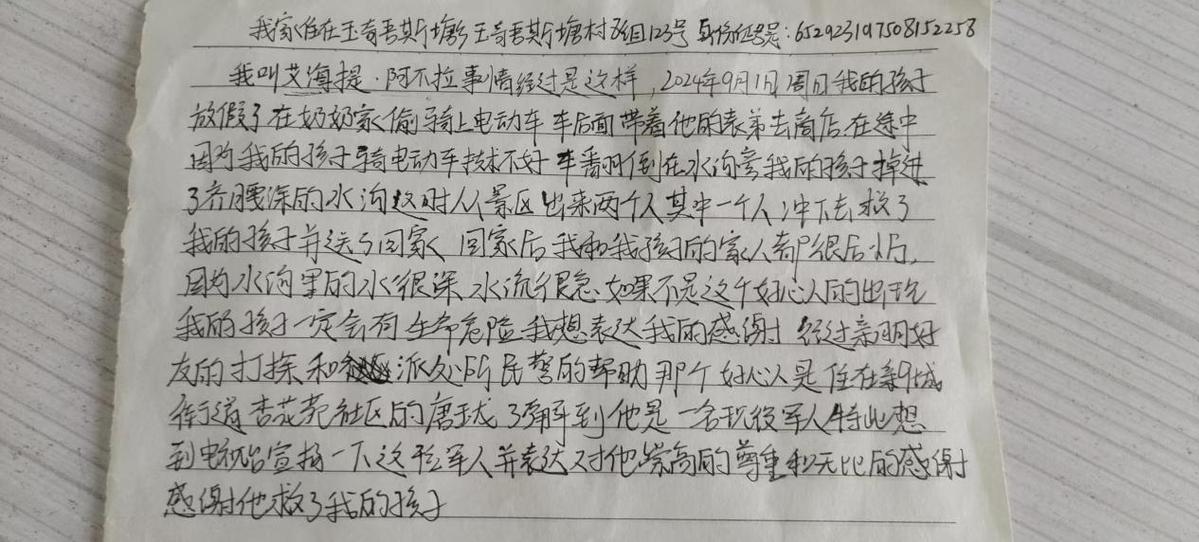 我家住在玉奇吾斯塘乡玉奇吾斯塘村3组123号 身份证号是:652923197508152258
我叫艾海提·阿不拉事情经过是这样,2024年9月1日周日我的孩子
放假了在奶奶家偷骑上电动车 车后面带着他的表弟去商店 在途中
因为我的孩子骑电动车技术不好 车番羽倒在水沟旁我的孩子掉进
了齐腰深的水沟这时人景区出来两个人其中一个人冲下去救了
我的孩子并送了回家 回家后我和我孩子的家人都很后怕,
因为水沟里的水很深 水流很急、如果不是这个好心人的出现
我的孩子一定会有生命危险 我想表达我的感谢 经过亲朋好
友的打探和派处所民警的帮助那个好心人是住在新城
街道杏花苑社区的唐 了解到他是一名现役军人特此想
到电视台宣扬一下这位军人并表达对他崇高的尊重和无比的感谢
感谢他救了我的孩子